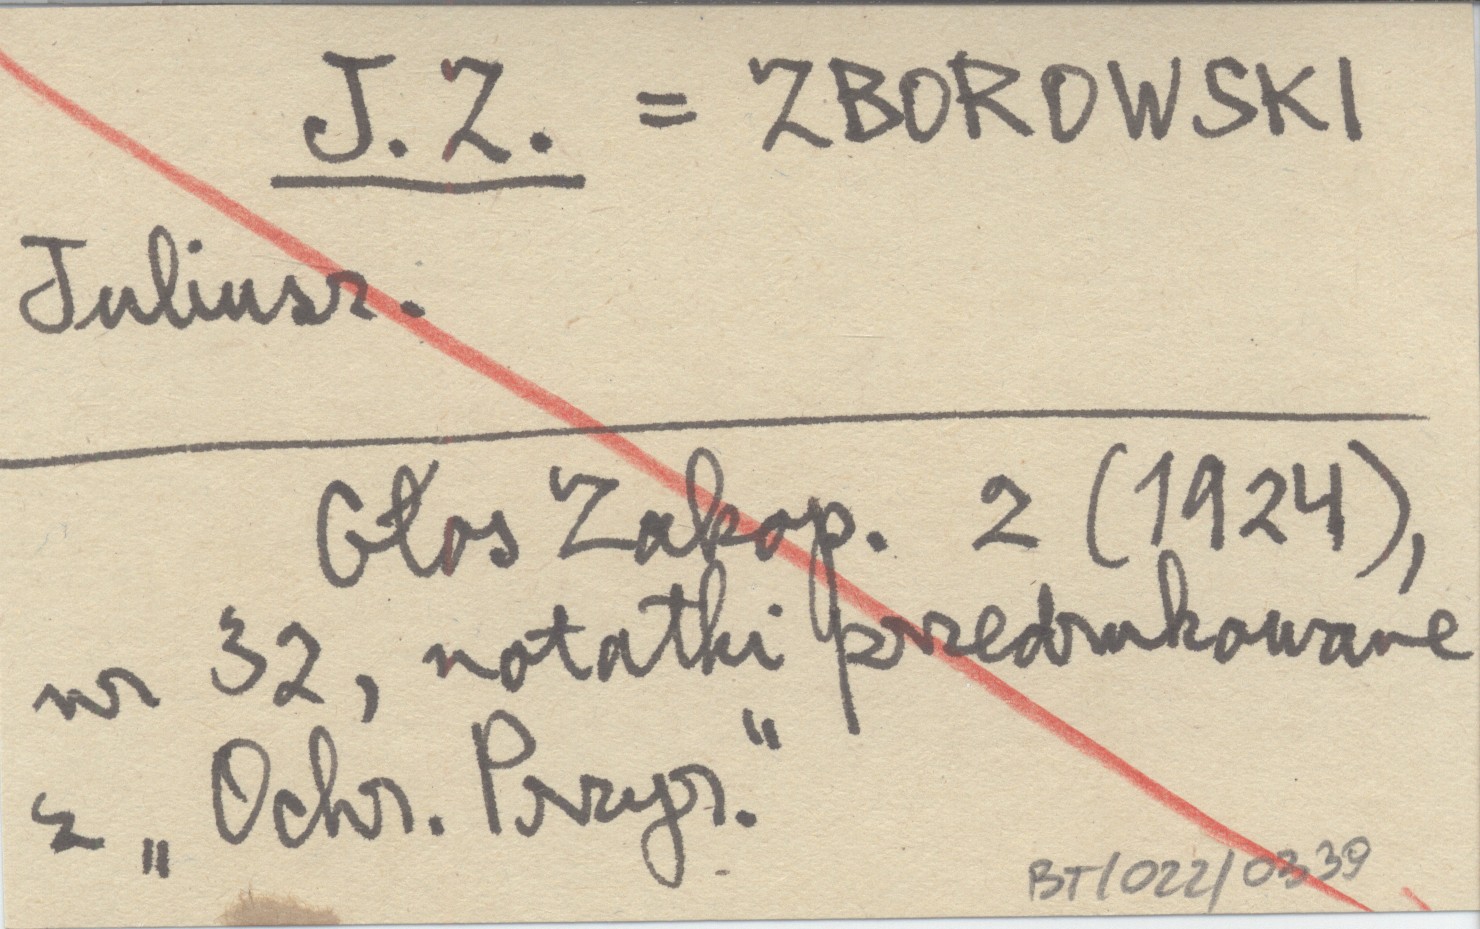 J. Z. = ZBOROWSKI
Juliusz.
Głos Zakop. 2 (1924),
nr 32, notatki przedrukowane
z „Ochr. Przyr."
BT/022/0339